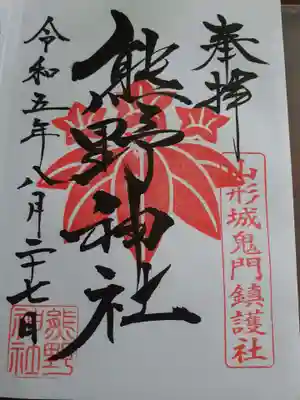 奉拝
山形城鬼門鎮護社
熊野神社
令和五年八月二十七日
熊野
神社